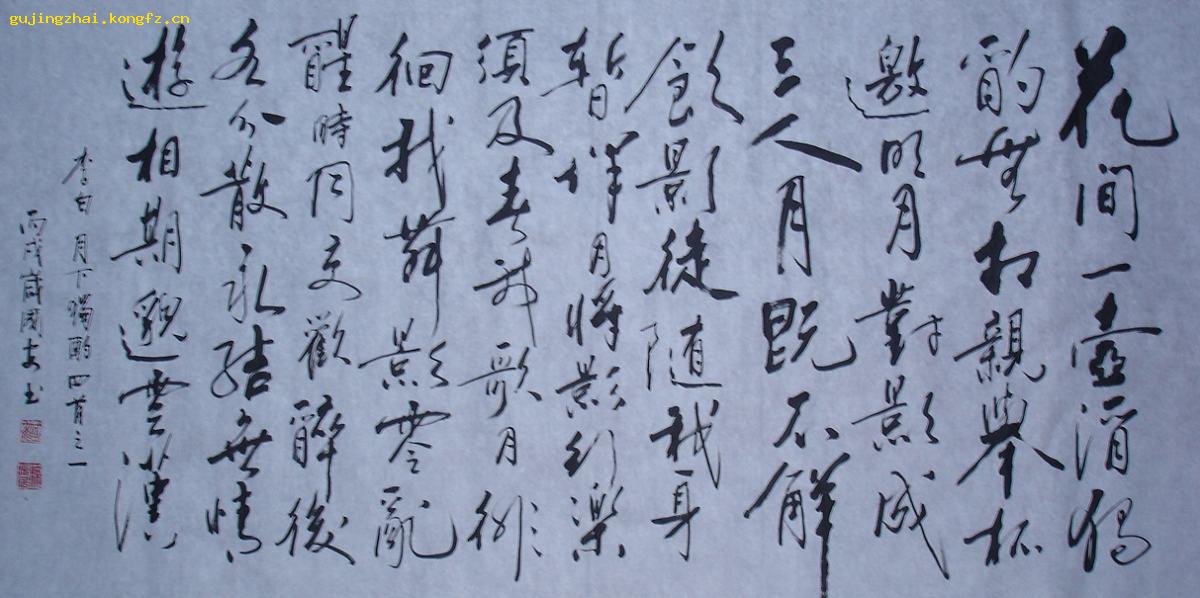 gujingzhai.kongfz.cn
花間一壺酒獨
酌無相親舉杯
邀明月對影成
三人月既不解
飲影徒隨我身
暫伴月將影行樂
須及春我歌月徘
徊我舞影零亂
醒時同交歡醉後
各分散永結無情
遊相期邈雲漢
李白月下獨酌四首之一
丙戌歲國书